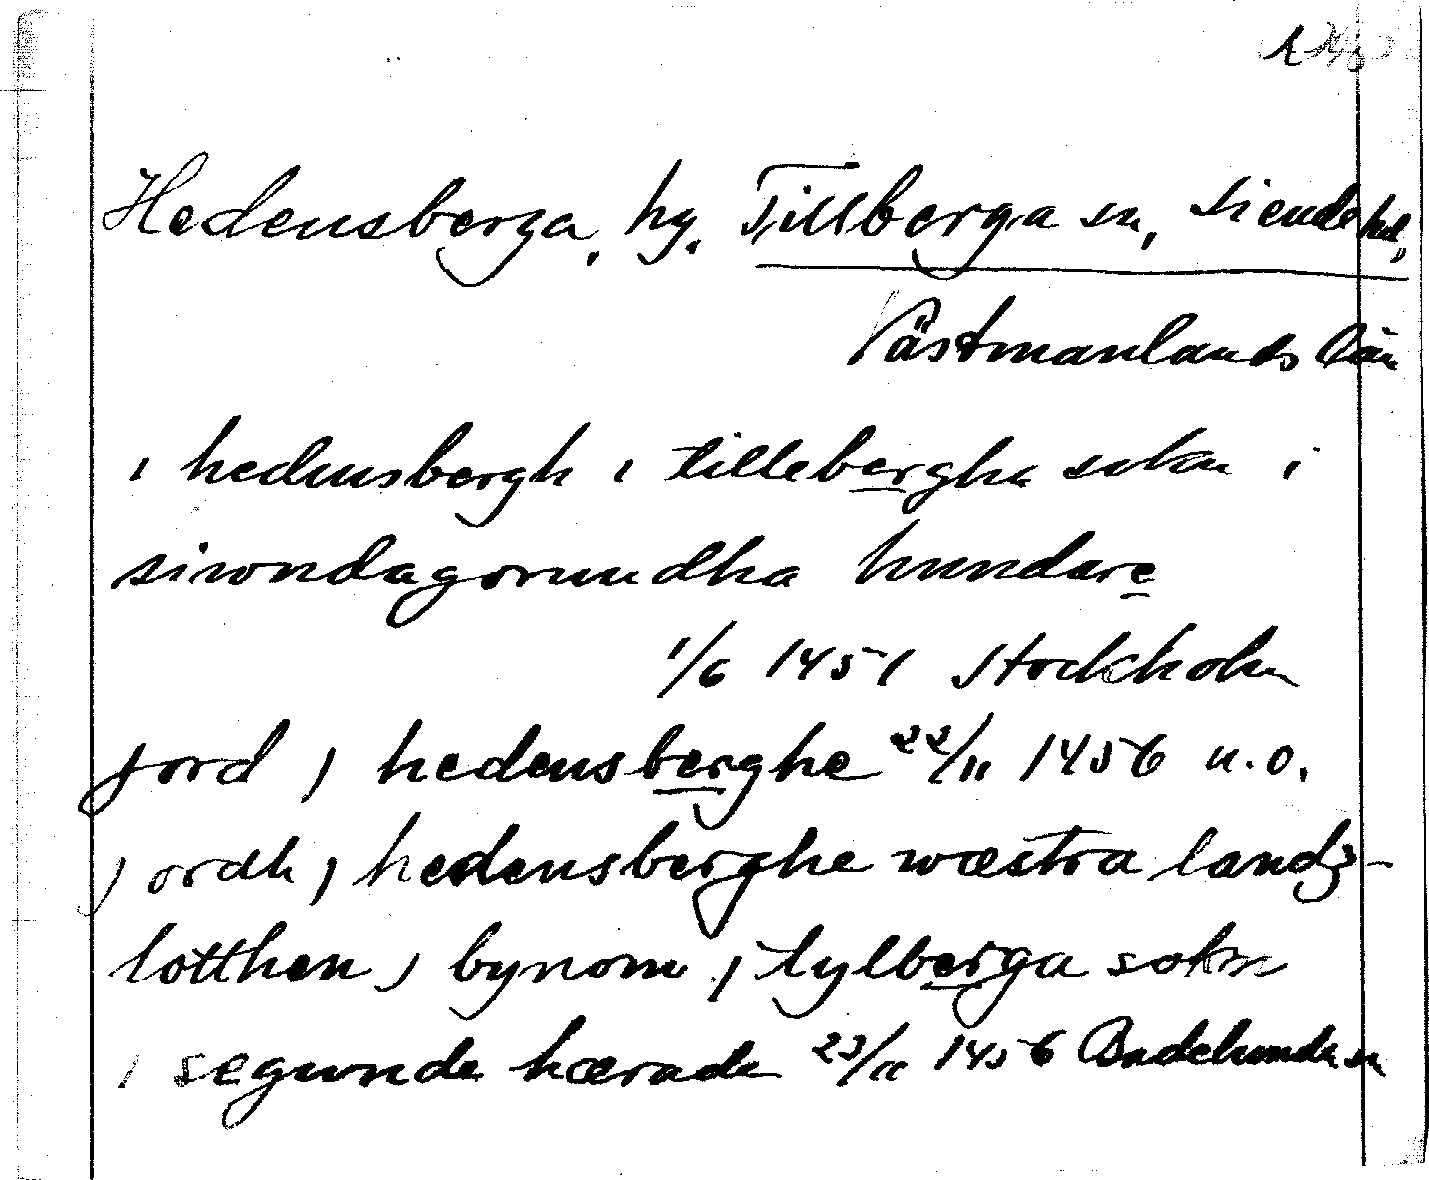 Hedensberga, hg. Tillberga sn, Siende hd,
Västmanlands län
i hedensbergh i tillebergha sokn i
siwndagorundha hundare
1/6 1451 Stockholm
jord j hedensberghe 22/11 1456 u.o.
jordh j hedensberghe wæstra landz-
lotthen j bynom j tylberga sokn
i segunde hærade 23/11 1456 Badelunda sn